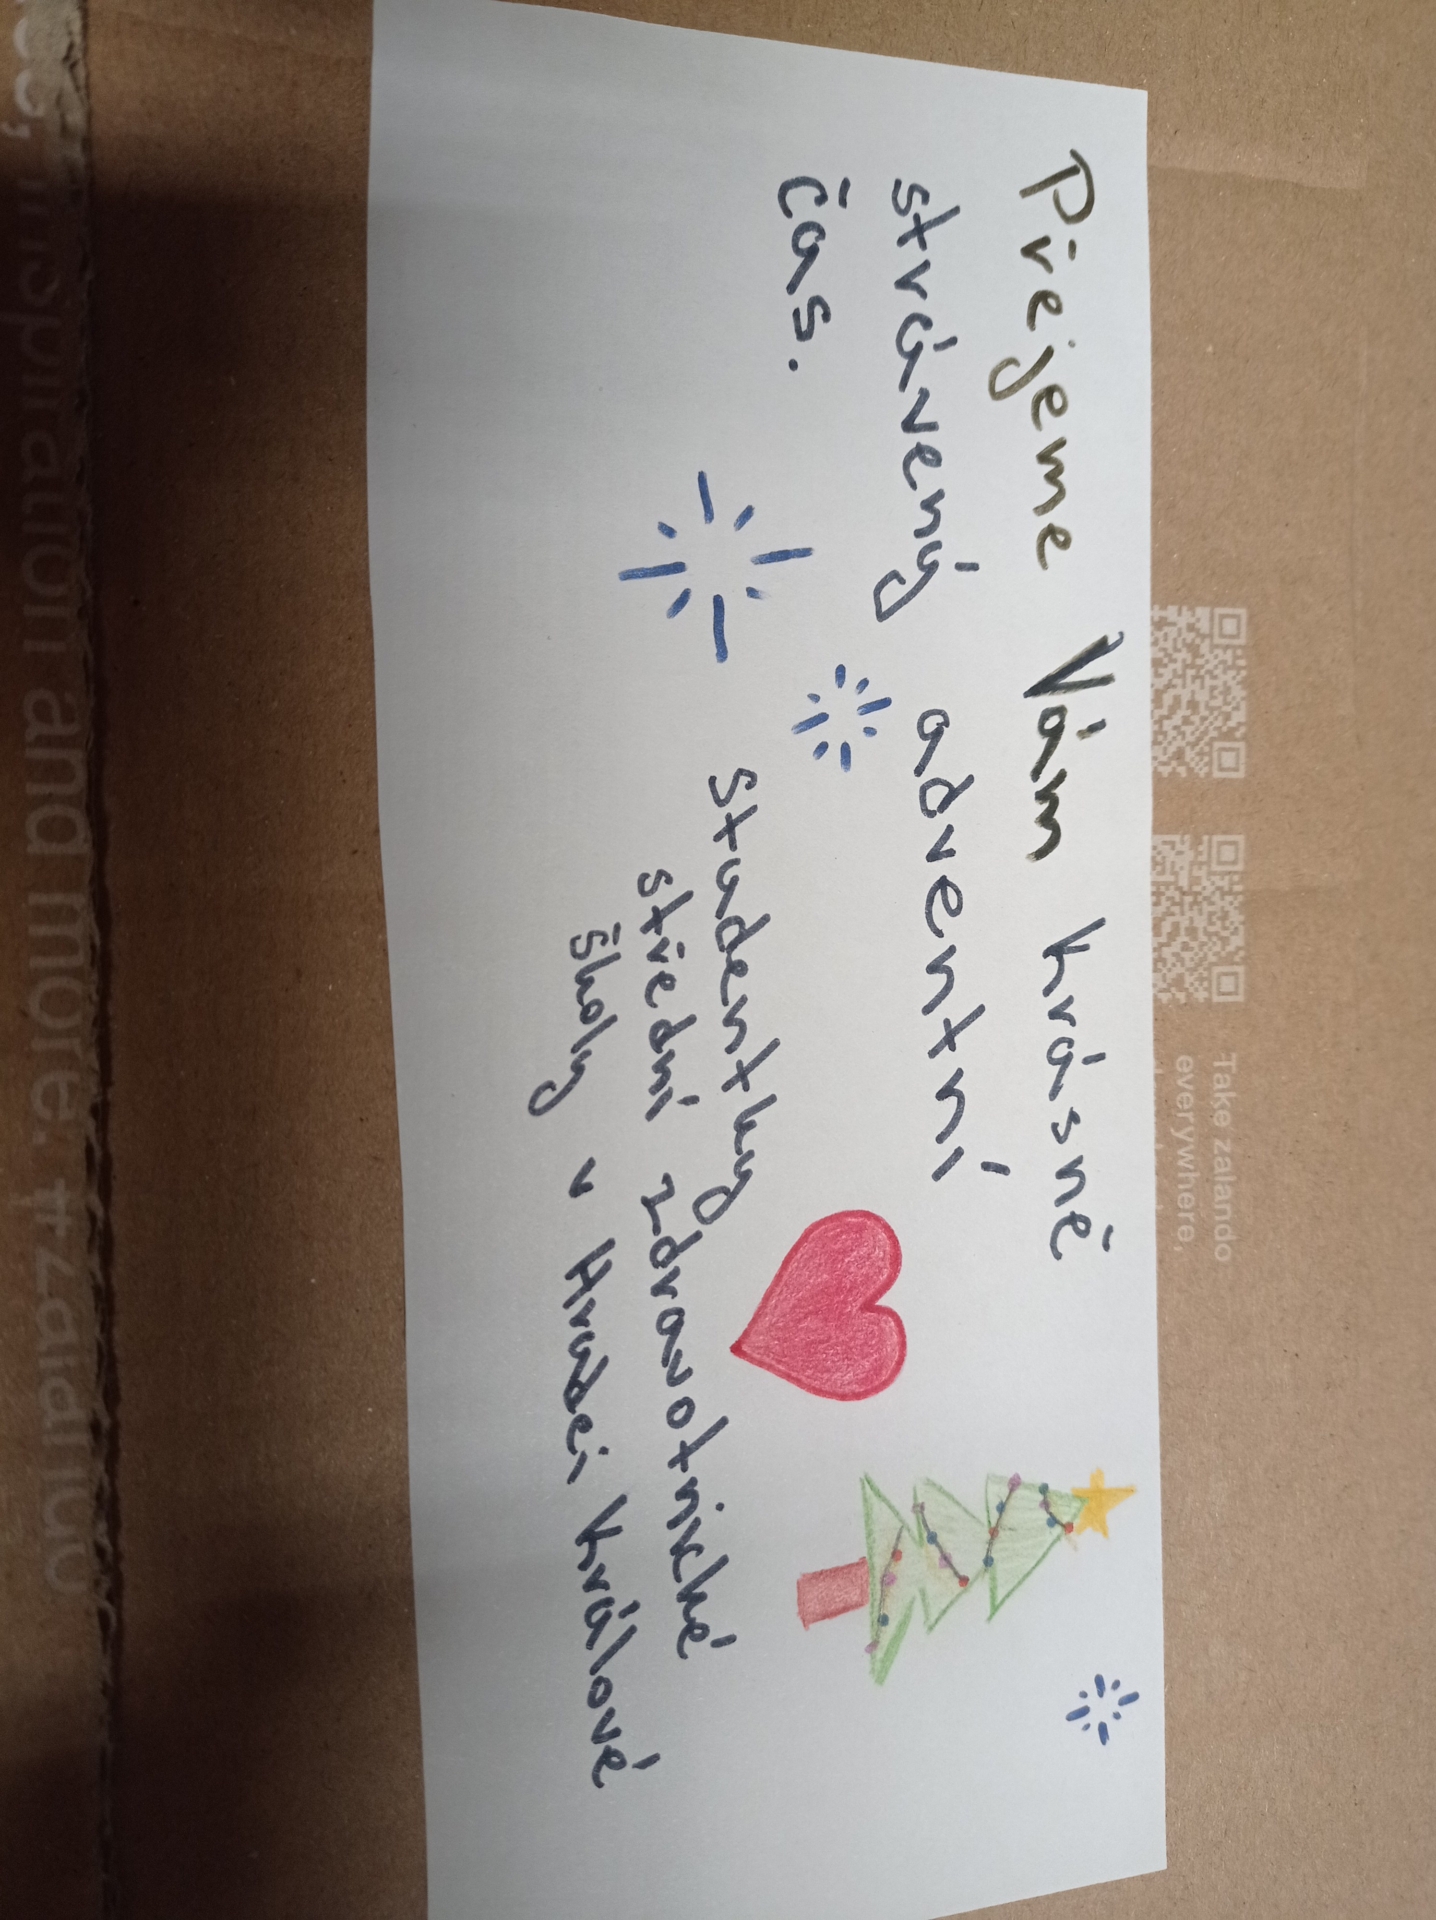 Přejeme Vám krásně
strávený adventní
čas.
studentky
střední zdravotnické
školy v Hradci Králové
Take zalando
everywhere,
inspiration and more. #zalando